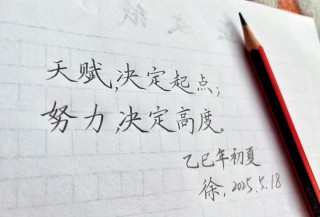 天赋,决定起点;
努力,决定高度.
乙巳年初夏
徐,2025.5.18